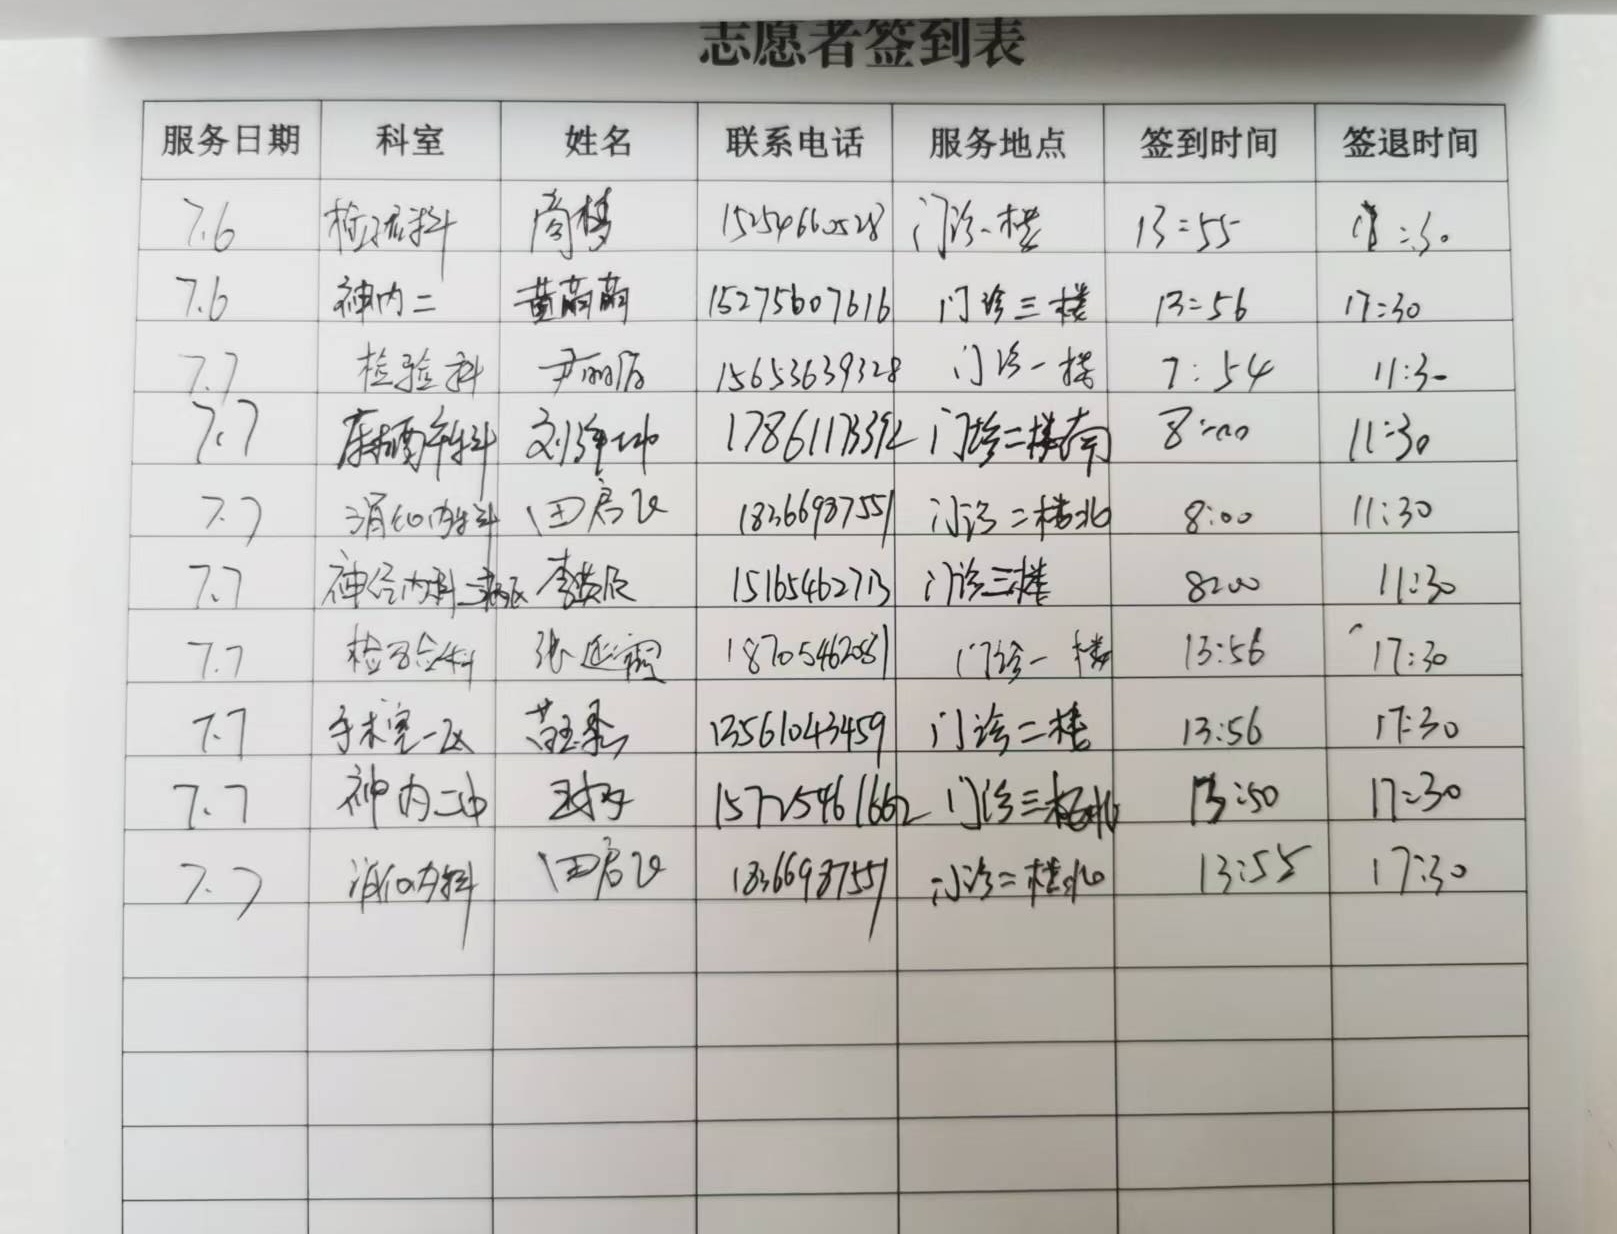 志愿者签到表
服务日期 科室 姓名 联系电话 服务地点 签到时间 签退时间
7.6 检验科 门诊一楼 13:55 :30
7.6 神内二 黄萌萌 15275607616 门诊三楼 13:56 17:30
7.7 检验科 尹丽 15653639328 门诊一楼 7:54 11:30
7.7 麻醉科 门诊二楼南 8:00 11:30
7.7 消化内科 田启飞 18366987551 门诊二楼北 8:00 11:30
7.7 神经内科二病区 门诊三楼 8:00 11:30
7.7 检验科 张延霞 18705462081 门诊一楼 13:56 17:30
7.7 手术室一区 13561043459 门诊二楼 13:56 17:30
7.7 神内二 门诊三楼北 13:50 17:30
7.7 消化内科 田启飞 18366987551 门诊二楼北 13:55 17:30